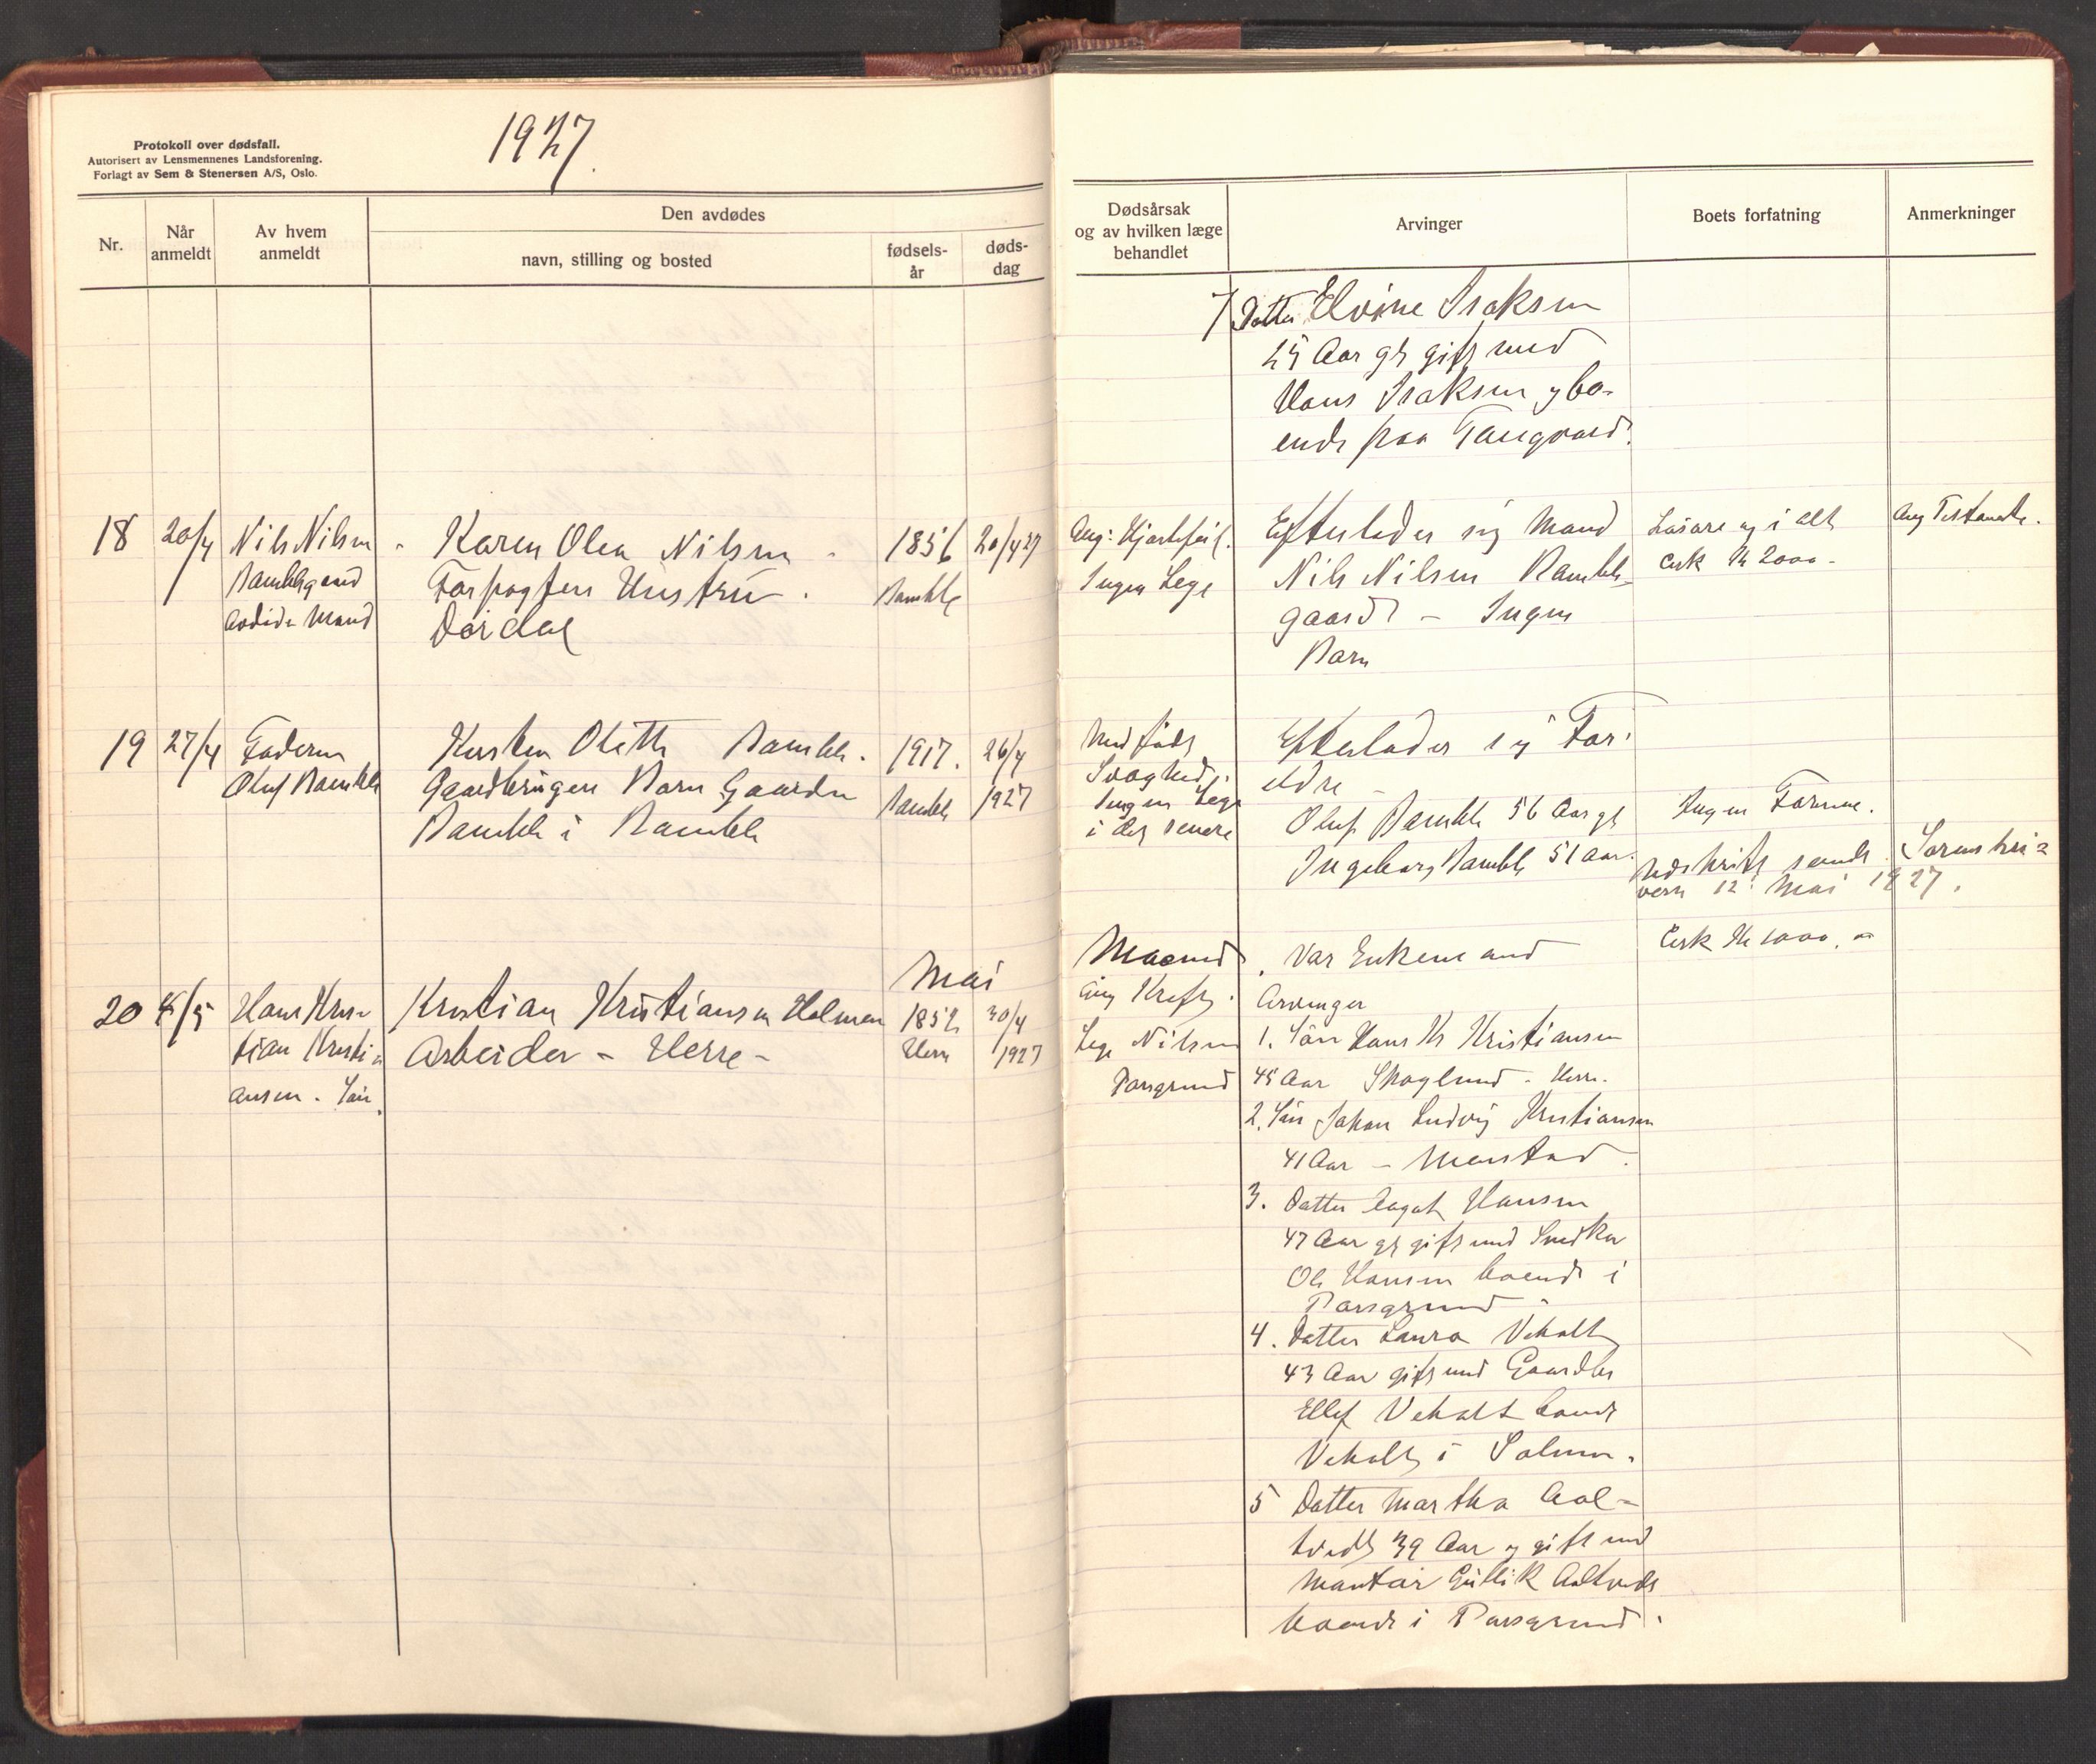 1927.
Protokoll over dødsfall.
Autorisert av Lensmennenes Landsforening.
Forlagt av Sem & Stenersen A/S, Oslo.
Nr.
Når
anmeldt
Av hvem
anmeldt
Den avdødes
navn, stilling og bosted
fødsels-
år
døds-
dag
Dødsårsak
og av hvilken læge
behandlet
Arvinger
Boets forfatning
Anmerkninger
7 Datter Elvine Isaksen
25 Aar gl gift med
Hans Isaksen og bo-
ende paa Tangvald.
18
20/4
Nils Nilsen
Bamblegaard
Mand
Karen Olea Nilsen
Forpagters Hustru.
Dørdal
1856
Bamble
20/4 27
Ang: Hjertefeil.
Ingen Lege
Efterlader sig Mand
Nils Nilsen Bamble-
gaard - Ingen
Barn
Løsøre og i alt
cirk Kr 2000-
Ang Testamente.
19
27/4
Faderen
Oluf Bamble
Kirsten Olette Bamble.
Gaardbrugers Barn Gaarden
Bamble i Bamble
1917.
Bamble
26/4
1927
Medfødt
Svaghed.
Ingen Lege
i det senere
Efterlader sig For-
eldre
Oluf Bamble 56 Aar gl
Ingeborg Bamble 51 aar.
Ingen Formue.
Udskrift sendt Sorenskri-
veren 12 Mai 1927.
Mai
20
4/5
Hans Kris-
tian Kristi-
ansen. Søn.
Kristian Kristiansen Holmen
Arbeider - Herre -
1852
Herre
30/4
1927
Ang Kreft.
Lege Nilsen
Porsgrund
Var Enkemand
Arvinger
1. Søn Hans Kr Kristiansen
45 Aar Skoglund. Herre.
2. Søn Johan Ludvig Kristiansen
41 Aar - Menstad.
3. Datter Hansen
47 Aar gl gift med Snedker
Ole Hansen boende i
Porsgrund
4. Datter Laura Veholt
43 Aar gift med Gaardbr
Ellef Veholt boende
Veholt i Solum.
5 Datter Martha Aal-
tvedt 39 Aar og gift med
Montør Gullik Aaltvedt
boende i Porsgrund.
Cirk Kr 1000.-